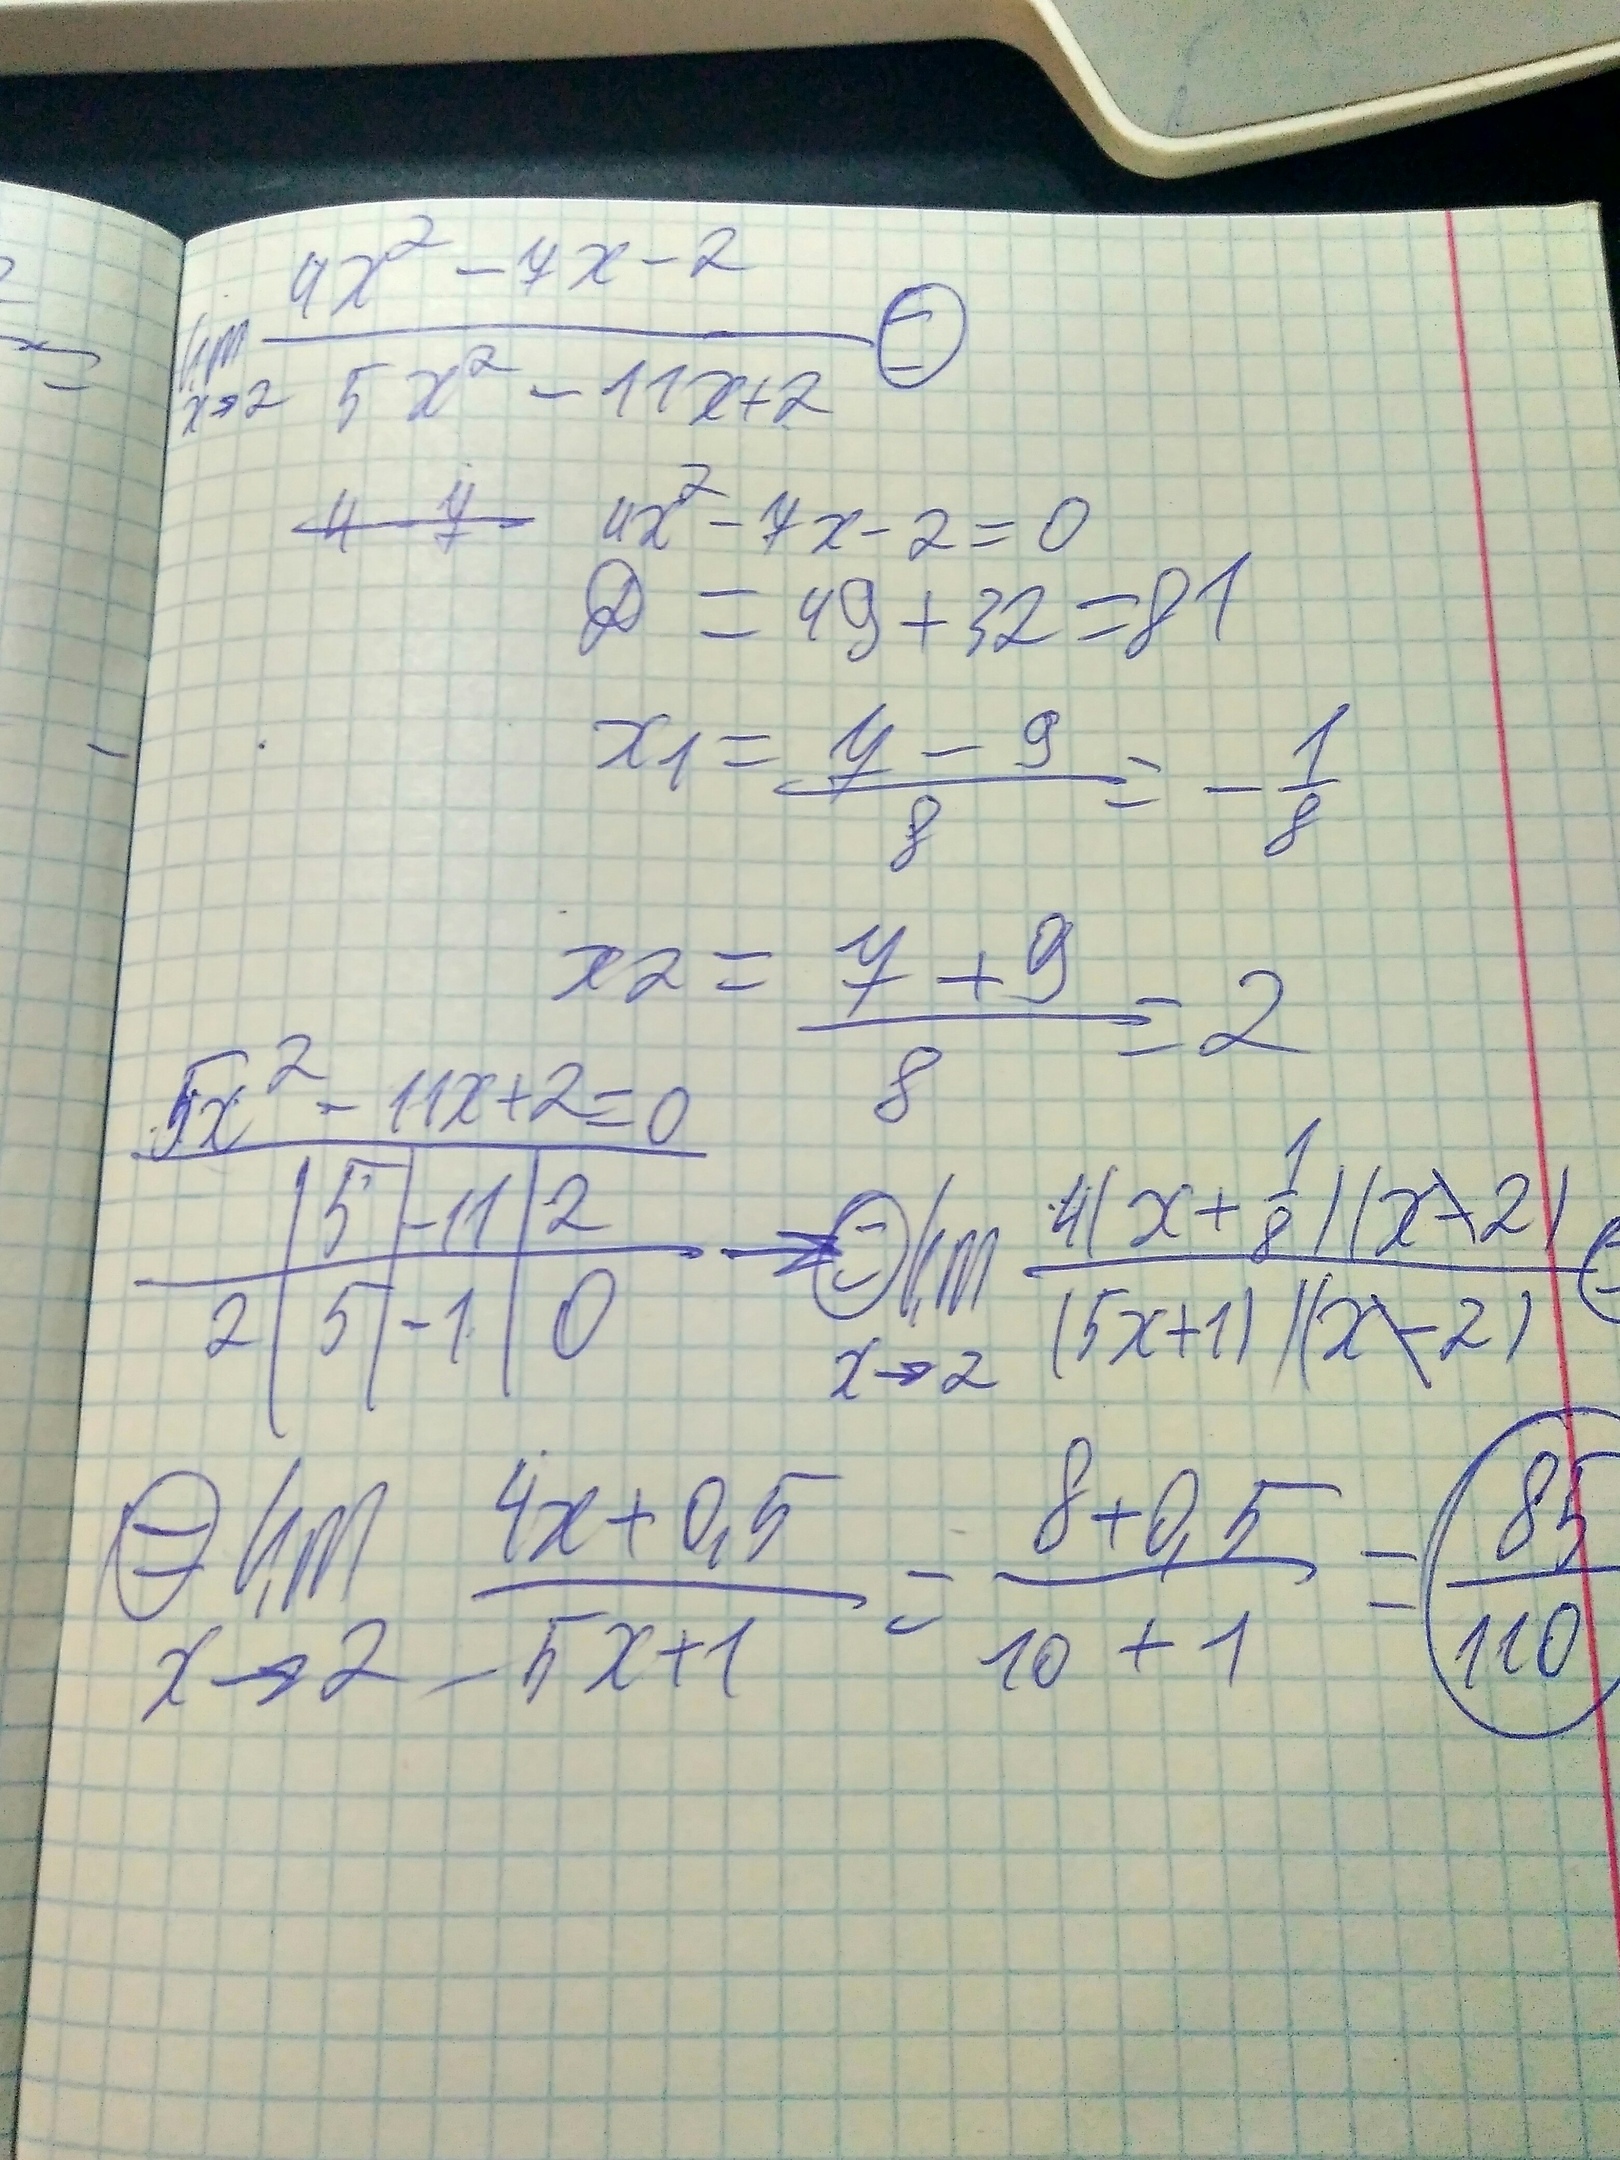 lim x→2 (4x² - 7x - 2)/(5x² - 11x + 2) =
4 - 7
4x² - 7x - 2 = 0
D = 49 + 32 = 81
x1 = (7 - 9)/8 = -1/8
x2 = (7 + 9)/8 = 2
5x² - 11x + 2 = 0
| 5 | -11 | 2
2 | 5 | -1 | 0
→ = lim x→2 4(x + 1/8)(x - 2)/(5x + 1)(x - 2) =
= lim x→2 (4x + 0,5)/(5x + 1) = (8 + 0,5)/(10 + 1) = 85/110